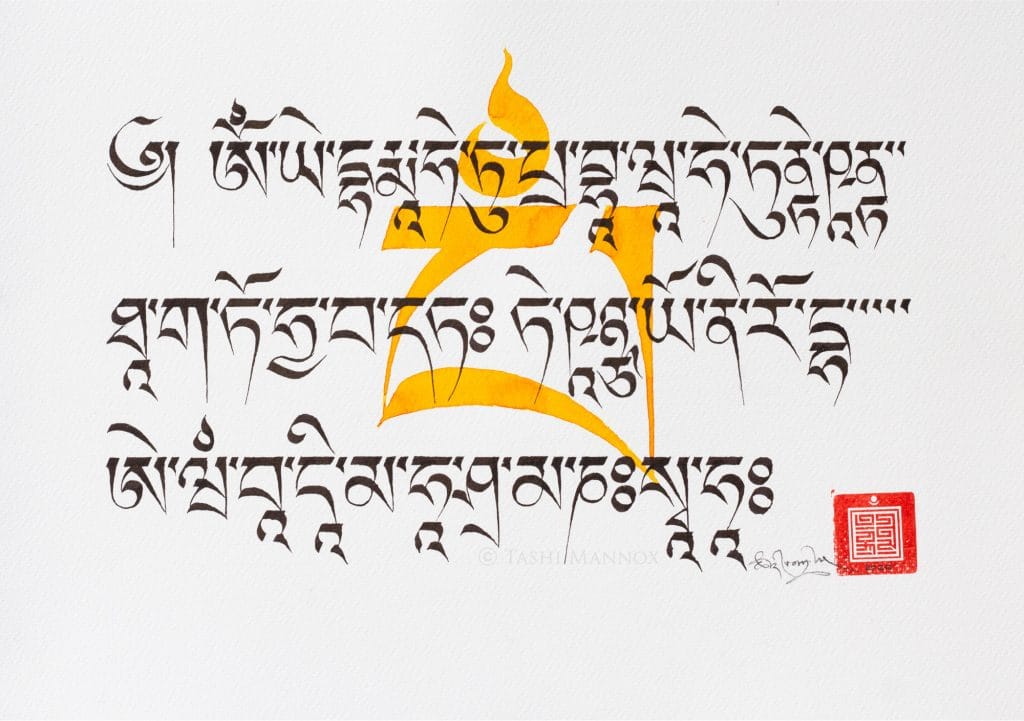 ༄ ཨོཾ་ཡེ་དྷརྨཱ་ཧེ་ཏུ་པྲ་བྷ་ཝཱ་ཧེ་ཏུནྟེ་ཥཱནྟ་
ཐཱ་ག་ཏོ་ཧྱ་བ་དཏཿ ཏེ་ཥཱཉྩ་ཡོ་ནི་རོ་དྷ་
ཨེ་ཝཾ་བཱ་དཱི་མ་ཧཱ་ཤྲ་མ་ཎཿསྭཱ་ཧཱཿ
© TASHI MANNOX